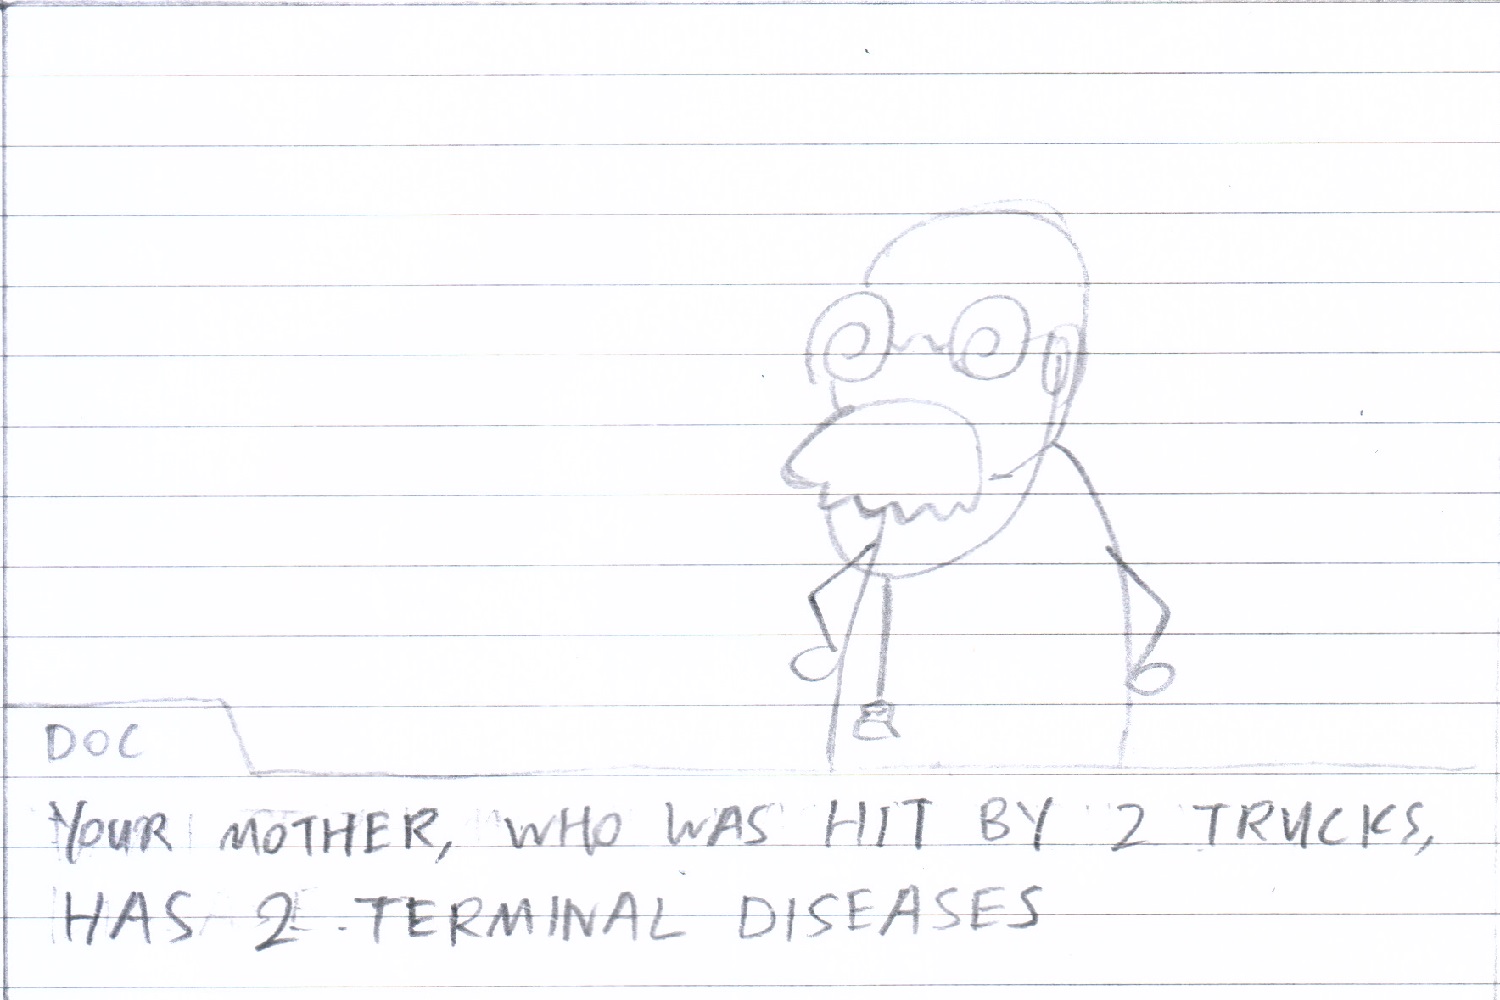 DOC
YOUR MOTHER, WHO WAS HIT BY 2 TRUCKS,
HAS 2 TERMINAL DISEASES